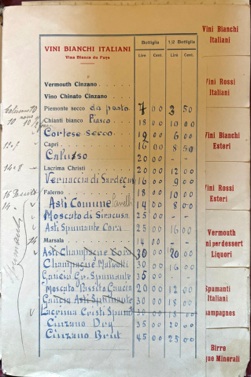 VINI BIANCHI ITALIANI
Vino Bianco da Pasto
Bottiglia
1/2 Bottiglia
Lire Cent. Lire Cent.
Vermouth Cinzano
Vino Chinato Cinzano
Piemonte secco da pasto 7 00 3 50
Chianti bianco 18 00 10 00
Cortese secco 00 6 00
Capri 16 00 8 50
Calusso 20 00
Lacrima Christi 20 00 12 00
Vernaccia di Sardegna 16 00 9 00
Falerno 18 00 10 00
Asti Comune 14 00 8 00
Moscato di Siracusa 25 00
Asti Spumante Cora 25 00 16 00
Marsala
Asti Champagne 30 00 20 00
Champagne 30 00 16 00
Gancia Gr. Spumante
Moscato Gancia 20 00 12 00
Gancia Asti Spumante 30 00 18 00
Lacrima Cristi Spum 00 18 00
Cinzano Dry 35 00 20 00
Cinzano Brut 45 00 25 00
Vini Bianchi
Italiani
Vini Rossi
Italiani
Vini Bianchi
Esteri
Vini Rossi
Esteri
Vermouth
Vini per dessert
Liquori
Spumanti
Italiani
Champagnes
Birre
Acque Minerali